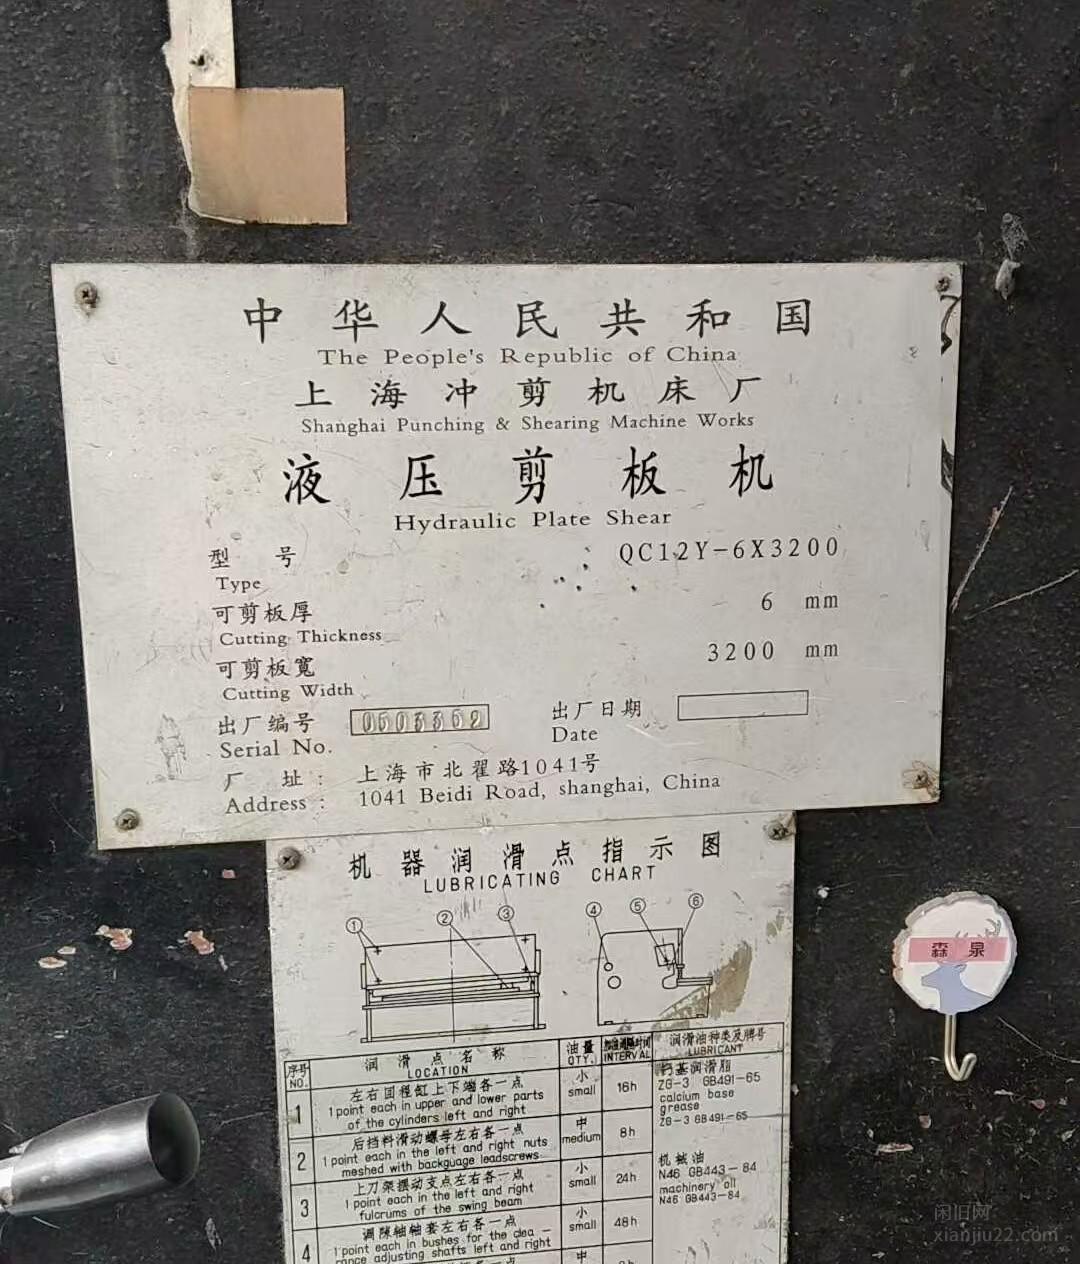 中华人民共和国
The People's Republic of China
上海冲剪机床厂
Shanghai Punching & Shearing Machine Works
液压剪板机
Hydraulic Plate Shear
型 号 QC12Y-6X3200
Type
可剪板厚 6 mm
Cutting Thickness
可剪板宽 3200 mm
Cutting Width
出厂编号 出厂日期
Serial No. Date
厂 址: 上海市北翟路1041号
Address: 1041 Beidi Road, shanghai, China
机器润滑点指示图
LUBRICATING CHART
① ② ③ ④ ⑤ ⑥
序号 润滑点名称 油量 润滑油种类及牌号
NO. LOCATION QTY. INTERVAL LUBRICANT
1 左右回程缸上下端各一点 小 16h 钙基润滑脂
1 point each in upper and lower parts small ZG-3 GB491-65
of the cylinders left and right calcium base
grease
ZG-3 GB491-65
2 后挡料滑动螺母左右各一点 中 8h
1 point each in the left and right nuts medium
meshed with backguage leadscrews
3 上刀架摆动支点左右各一点 小 24h 机械油
1 point each in the left and right small N46 GB443-84
fulcrums of the swing beam machinery oil
N46 GB443-84
4 调隙轴轴套左右各一点 小 48h
1 point each in bushes for the clea- small
rance adjusting shafts left and right
中
森泉
闲旧网
xianjiu22.com